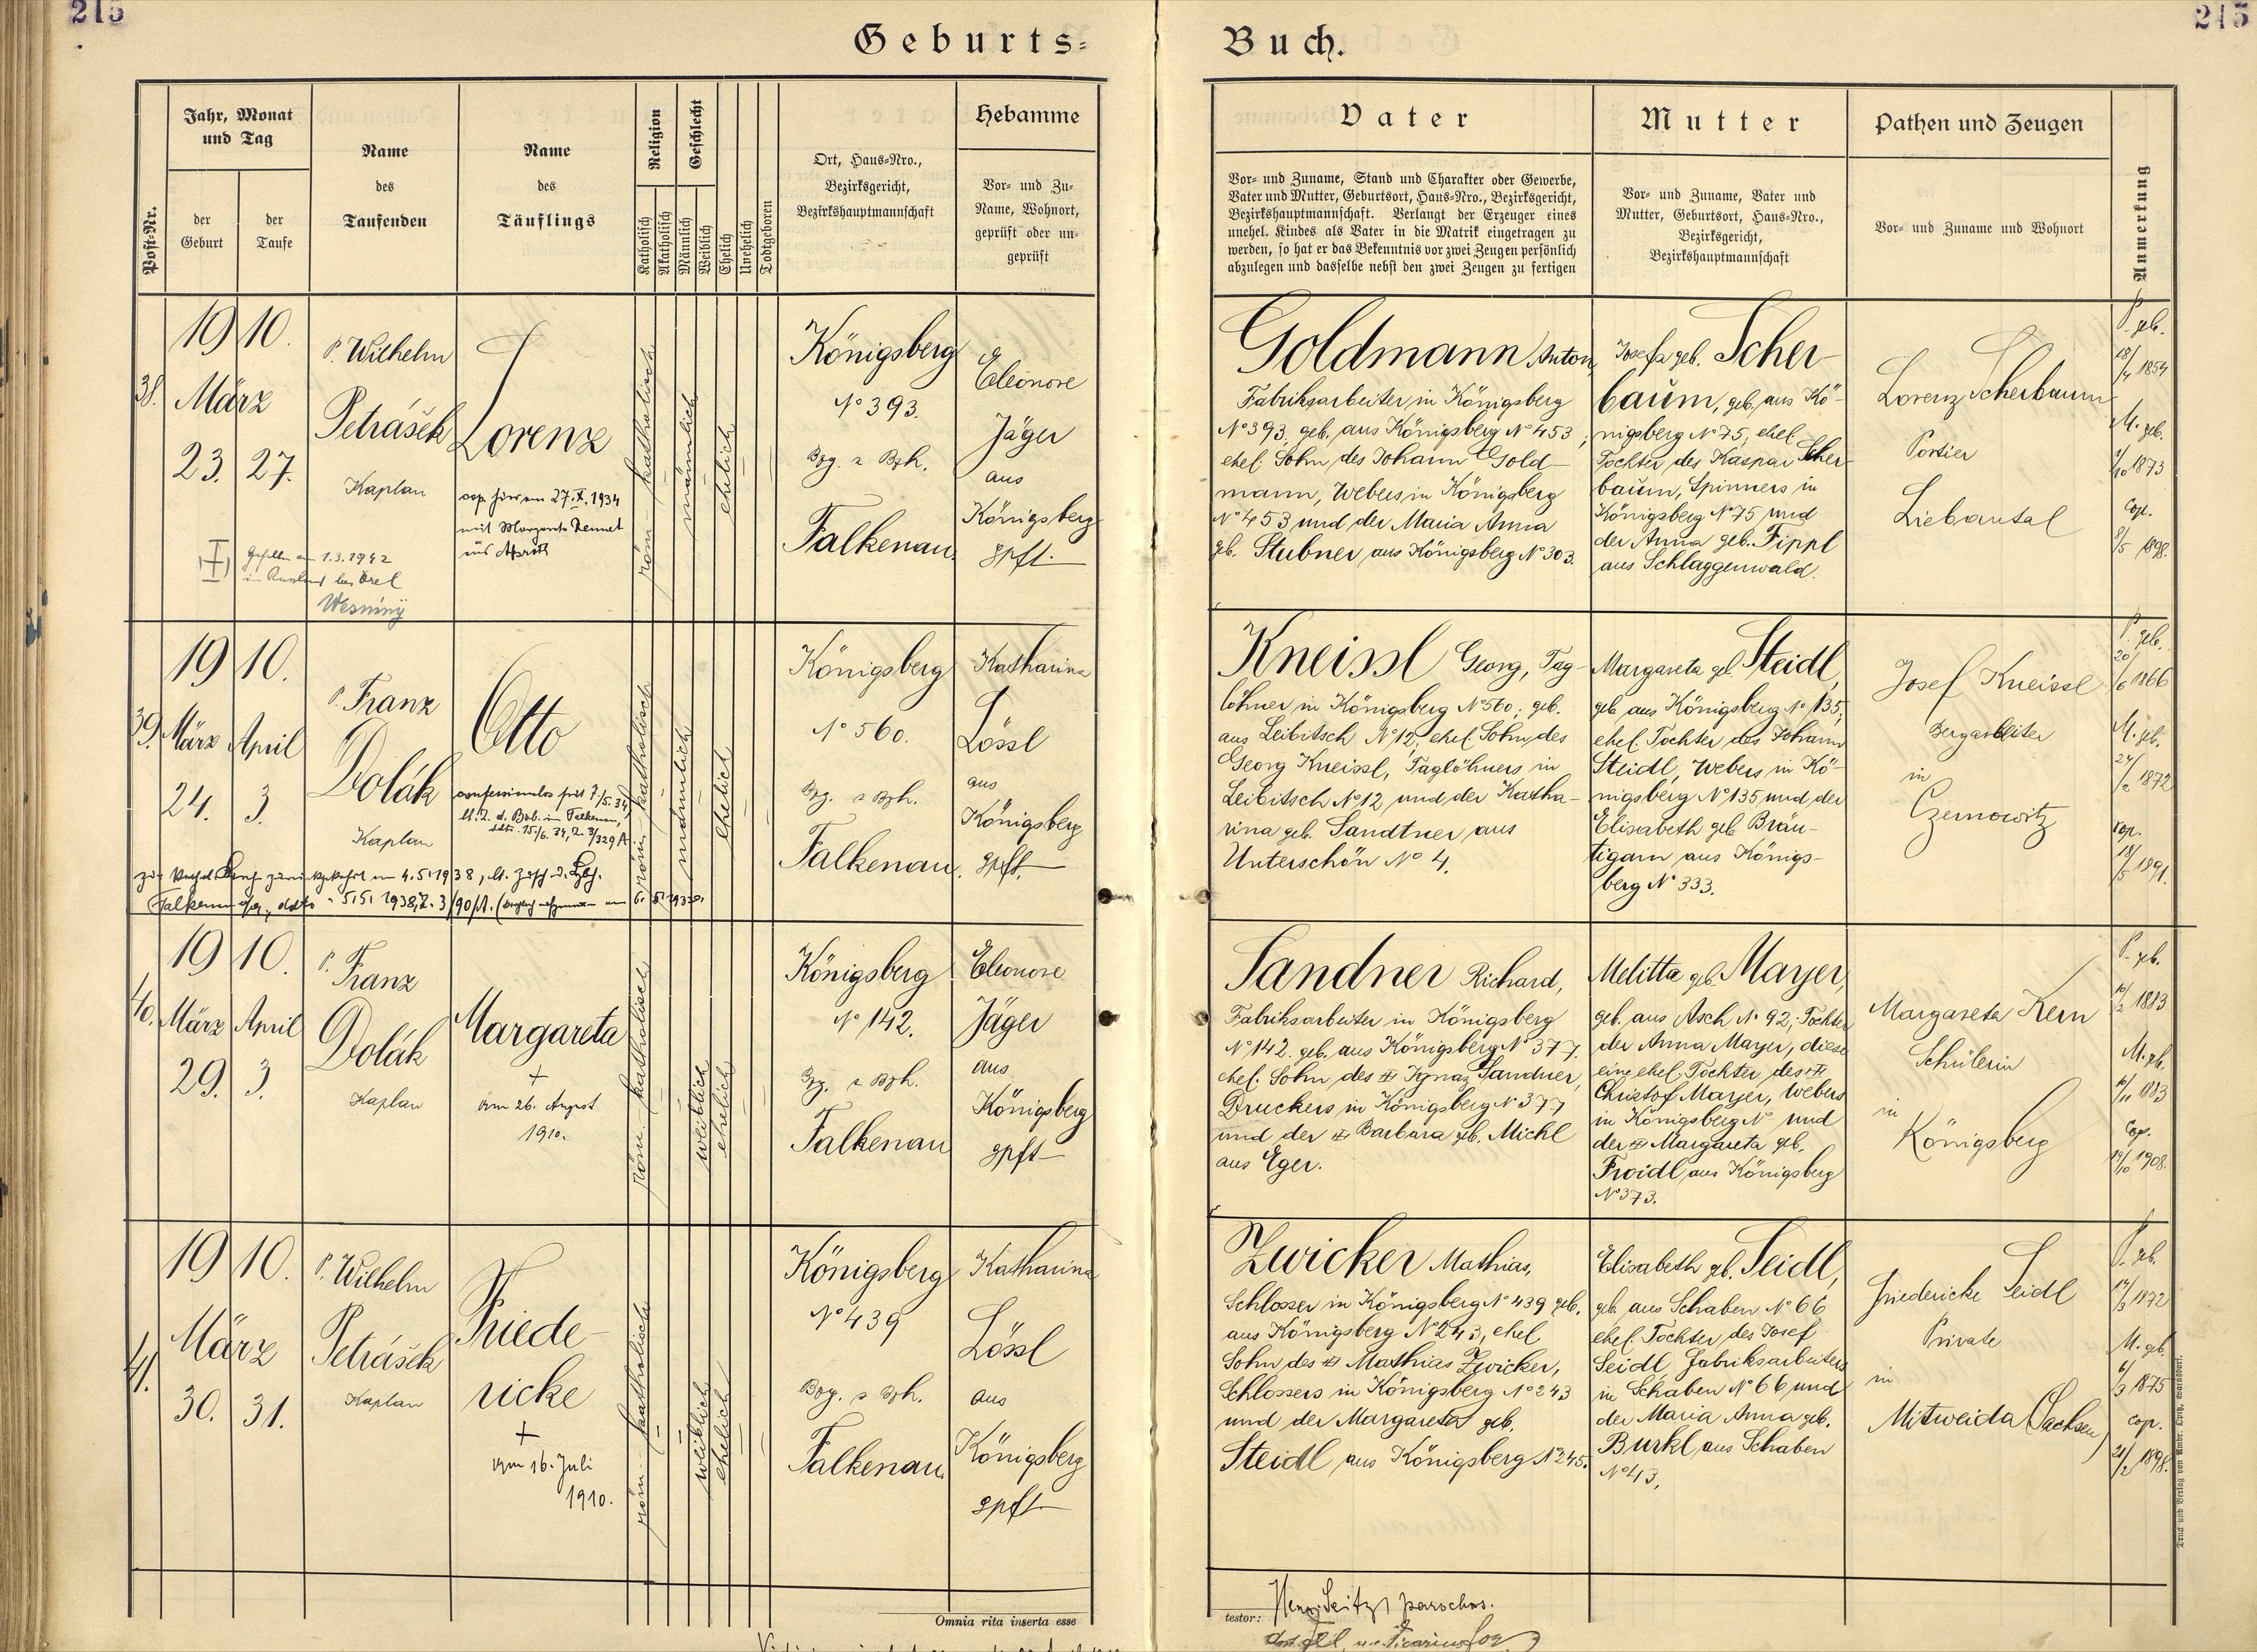 215
215
Geburts-
Buch.
Post-Nr.
Jahr, Monat
und Tag
der
Geburt
der
Taufe
Name
des
Taufenden
Name
des
Täuflings
Religion
Katholisch
Akatholisch
Geschlecht
Männlich
Weiblich
Ehelich
Unehelich
Todtgeboren
Ort, Haus-Nro.,
Bezirksgericht,
Bezirkshauptmannschaft
Hebamme
Vor- und Zu-
Name, Wohnort,
geprüft oder un-
geprüft
Vater
Vor- und Zuname, Stand und Charakter oder Gewerbe,
Vater und Mutter, Geburtsort, Haus-Nro., Bezirksgericht,
Bezirkshauptmannschaft. Verlangt der Erzeuger eines
unehel. Kindes als Vater in die Matrik eingetragen zu
werden, so hat er das Bekenntnis vor zwei Zeugen persönlich
abzulegen und dasselbe nebst den zwei Zeugen zu fertigen
Mutter
Vor- und Zuname, Vater und
Mutter, Geburtsort, Haus-Nro.,
Bezirksgericht,
Bezirkshauptmannschaft
Pathen und Zeugen
Vor- und Zuname und Wohnort
Anmerkung
38.
1910.
März
23. 27.
P. Wilhelm
Petrášek
Kaplan
Lorenz
cop. hier am 27.X.1934
mit
aus
Gefallen am 1.3.1942
in Russland bei Orel
röm. katholisch
männlich
ehelich
Königsberg
No 393.
Bzg. u Bzh.
Falkenau.
Eleonore
Jäger
aus
Königsberg
gpft.
Goldmann Anton,
Fabriksarbeiter in Königsberg
No 393, geb. aus Königsberg No 453;
ehel. Sohn des Johann Gold-
mann, Webers in Königsberg
No 453 und der Maria Anna
geb. Stubner aus Königsberg No 303.
Josefa geb. Scher-
baum, geb. aus Kö-
nigsberg No 75, ehel.
Tochter des Kaspar Scher-
baum, Spinners in
Königsberg No 75 und
der Anna geb. Fippl
aus Schlaggenwald.
Lorenz Scherbaum
Portier
Liebautal
P. geb.
18/4 1854
M. geb.
1873
Cop.
8/5 1898.
39.
1910.
März April
24. 3.
P. Franz
Dolák
Kaplan
Otto
confessionslos seit 7/5. 34,
röm. katholisch
männlich
ehelich
Königsberg
No 560.
Bzg. u Bzh.
Falkenau.
Katharina
Lössl
aus
Königsberg
gpft.
Kneissl Georg, Tag-
löhner in Königsberg No 560; geb.
aus Leibitsch No 12, ehel. Sohn des
Georg Kneissl, Taglöhners in
Leibitsch No 12 und der Katha-
rina geb. Sandtner aus
Unterschön No 4.
Margareta geb. Steidl,
geb. aus Königsberg No 135,
ehel. Tochter des Johann
Steidl, Webers in Kö-
nigsberg No 135 und der
Elisabeth geb. Bräu-
tigam aus Königs-
berg No 333.
Josef Kneissl
Bergarbeiter
in
Czernowitz
P. geb.
20/6 1866
M. geb.
24/2 1872
cop.
18/5 1891.
40.
1910.
März April
29. 3.
P. Franz
Dolák
Kaplan
Margareta
+
am 26. August
1910.
röm. katholisch
weiblich
ehelich
Königsberg
No 142.
Bzg. u Bzh.
Falkenau
Eleonore
Jäger
aus
Königsberg
gpft
Sandner Richard,
Fabriksarbeiter in Königsberg
No 142. geb. aus Königsberg No 377.
ehel. Sohn des Ignaz Sandner,
Druckers in Königsberg No 377
und der Barbara geb. Michl
aus Eger.
Melitta geb. Mayer,
geb. aus Asch No 92; Tochter
der Anna Mayer, diese
eine ehel. Tochter des
Christof Mayer, Webers
in Königsberg No und
der Margareta geb.
Froidl aus Königsberg
No 373.
Margareta Kern
Schülerin
in
Königsberg
P. geb.
10/2 1883
M. gb.
16/11 1883
Cop.
19/10 1908.
41.
1910.
März
30. 31.
P. Wilhelm
Petrášek
Kaplan
Friede-
ricke
+
am 16. Juli
1910.
röm. katholisch
weiblich
ehelich
Königsberg
No 439
Bzg. u Bzh.
Falkenau.
Katharina
Lössl
aus
Königsberg
gpft
Zwicker Mathias,
Schlosser in Königsberg No 439 geb.
aus Königsberg No 243, ehel.
Sohn des Mathias Zwicker,
Schlossers in Königsberg No 243
und der Margareta geb.
Steidl aus Königsberg No 245.
Elisabeth geb. Seidl,
geb. aus Schaben No 66
ehel. Tochter des Josef
Seidl, Fabriksarbeiters
in Schaben No 66 und
der Maria Anna geb.
Burkl aus Schaben
No 43.
Friedericke Seidl
Private
in
Mitweida (Sachsen)
P. geb.
14/3 1872
M. geb.
6/3 1875
cop.
21/2 1898.
Omnia rita inserta esse
testor:
Seitz, parochus.